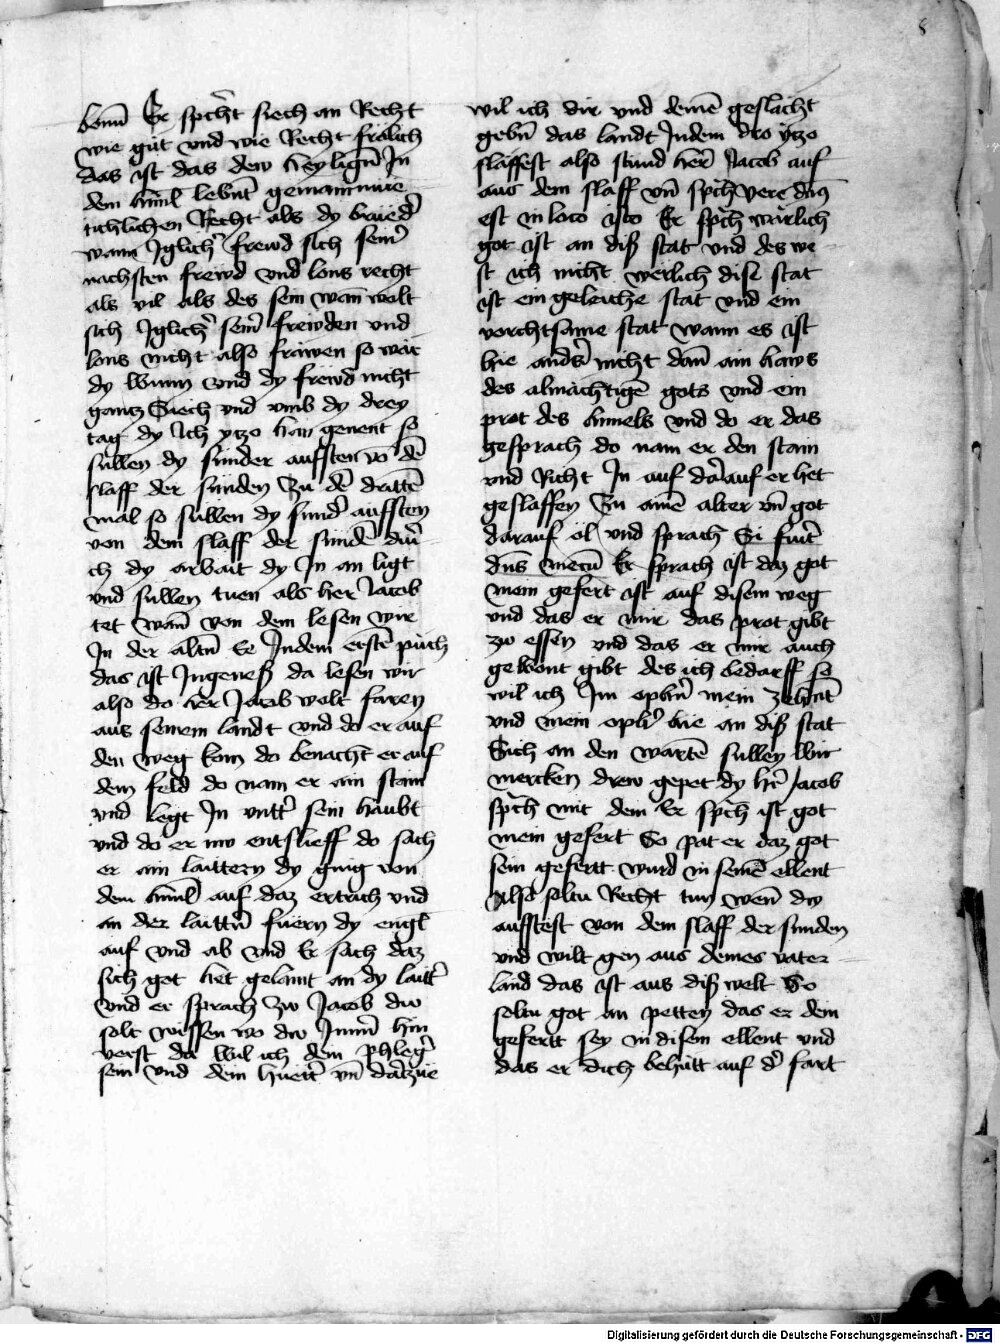 8
bonū Er spͨht siech an Recht
wie gůt vnd wie Recht frölich
das ist das dew heyligñ In
dem himl lebnt gemainnüe
tichlichen Recht als dy brüed̾
wann Iglich̾ frewd sich sein̾
nachsten frewd vnd lons recht
als vil als des sein wan̄ wolt
sich Iglich̾ sein̾ frewden vnd
lons nicht also fräwen so wär
dy wunn vnd dy frewd nicht
gantz Siech vnd vmb dy drey
tag dy Ich yczo han genent so
sullen dy sünder aufsten vō dē
slaff der sünden Zu dē drittē
mal so sullen dy sund̾ auffsten
von dem slaff der sündē dur̾
ch dy arbait dy In an ligt
vnd sullen tuen als her Jacob
tet wan̄ von dem lesen wir
In der altn̄ Ee Indem erstē püch
das ist Ingenesß da lesen wir
also do her Jacob wolt faren
aus seinem landt vnd do er auf
den weg kom do benacht er auf
dem feld do nam er ain stain
vnd legt In vntt̾ sein haubt
vnd do er nw entslieff do sach
er ain laittern dy ging von
dem himl auf daz ertrich vnd
an der laittn̄ füern dy engl
auf vnd ab vnd Er sach daz
sich got het gelaint an dy laitt̾
vnd er sprach zw Jacob dw
solt wissen wo dw Inn̄ hin
verst da wil ich dem phleg̾
sein vnd dein huett̾ vn̄ darzüe
wil ich dir vnd deinē geslächt
gebn̄ das landt Indem dw yczo
slaffest also stund her̾ Jacob auf
aus dem slaff vn̄ spͨch vere dn̄s
est in loco isto Er spͨch wärlich
got ist an diß stat vnd des we
st ich nicht werlich dise stat
ist ein geleiche stat vnd ein
vorchtsame stat wann es ist
hie and̾s nicht dan̄ ain haws
des almächtigē gots vnd ein
prot des himels vnd do er das
gesprach do nam er den stain
vnd Richt In auf dar auf er het
geslaffen Zu ainē alter vn̄ got
darauf öl vnd sprach Si fuit̾
dn̄s mecū Er sprach ist daz got
mein gefert ist auf disem weg
vnd das er mir das prot gibt
zw essen vnd das er mir auch
gebont gibt des ich bedarff so
wil ich Im opfn̄ mein zehnt̄
vnd mein oph̾ hie an diß stat
Sich an den wartē sullen wir
mercken drew gepet dy h̾r Jacob
spͨch mit dem Er spͨch ist got
mein gefert So pat er daz got
sein gefertt wurd in seinē ellent
Also soltu Recht tun wen̄ dw
aufstest von dem slaff der sunden
vnd wilt gen aus deines vater
land das ist aus diß welt So
soltu got an petten das er dein
gefertt sey in disem ellent vnd
das er dich behütt auf d̾ fart
Digitalisierung gefördert durch die Deutsche Forschungsgemeinschaft - DFG